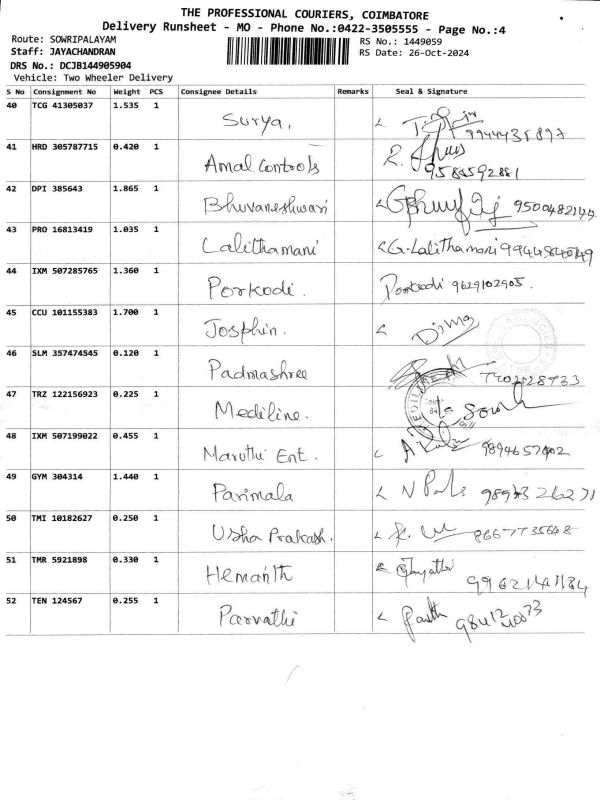 THE PROFESSIONAL COURIERS, COIMBATORE
Delivery Runsheet - MO - Phone No.:0422-3505555 - Page No.:4
Route: SOWRIPALAYAM
RS No.: 1449059
Staff: JAYACHANDRAN
RS Date: 26-Oct-2024
DRS No.: DCJB144905904
Vehicle: Two Wheeler Delivery
S No Consignment No Weight PCS Consignee Details Remarks Seal & Signature
40 TCG 41305037 1.535 1 Surya.
41 HRD 305787715 0.420 1 Amal Controls
42 DPI 385643 1.865 1 Bhuvaneshwari 9500482144
43 PRO 16813419 1.035 1 Lalithamani G. Lalithamani
44 IXM 507285765 1.360 1 Porkodi. Porkodi 9629102905.
45 CCU 101155383 1.700 1 Josphin.
46 SLM 357474545 0.120 1 Padmashree
47 TRZ 122156923 0.225 1 Mediline.
48 IXM 507199022 0.455 1 Maruthi Ent. 9894657402
49 GYM 304314 1.440 1 Parimala
50 TMI 10182627 0.250 1 Usha Prakash. 8667735648
51 TMR 5921898 0.330 1 Hemanth
52 TEN 124567 0.255 1 Parvathi